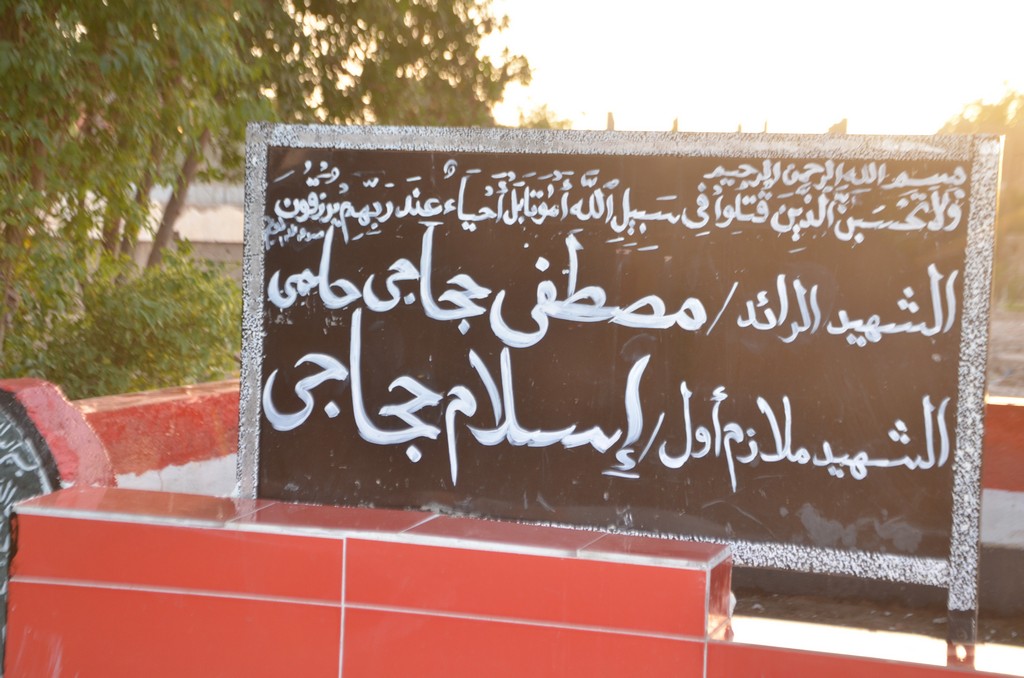 بسم الله الرحمن الرحيم
وَلَا تَحْسَبَنَّ الَّذِينَ قُتِلُوا فِي سَبِيلِ اللَّهِ أَمْوَتًا بَلْ أَحْيَاءٌ عِندَ رَبِّهِمْ يُرْزَقُونَ
الشهيد الرائد / مصطفى حجاجى حلمى
الشهيد ملازم أول / إسلام حجاجى